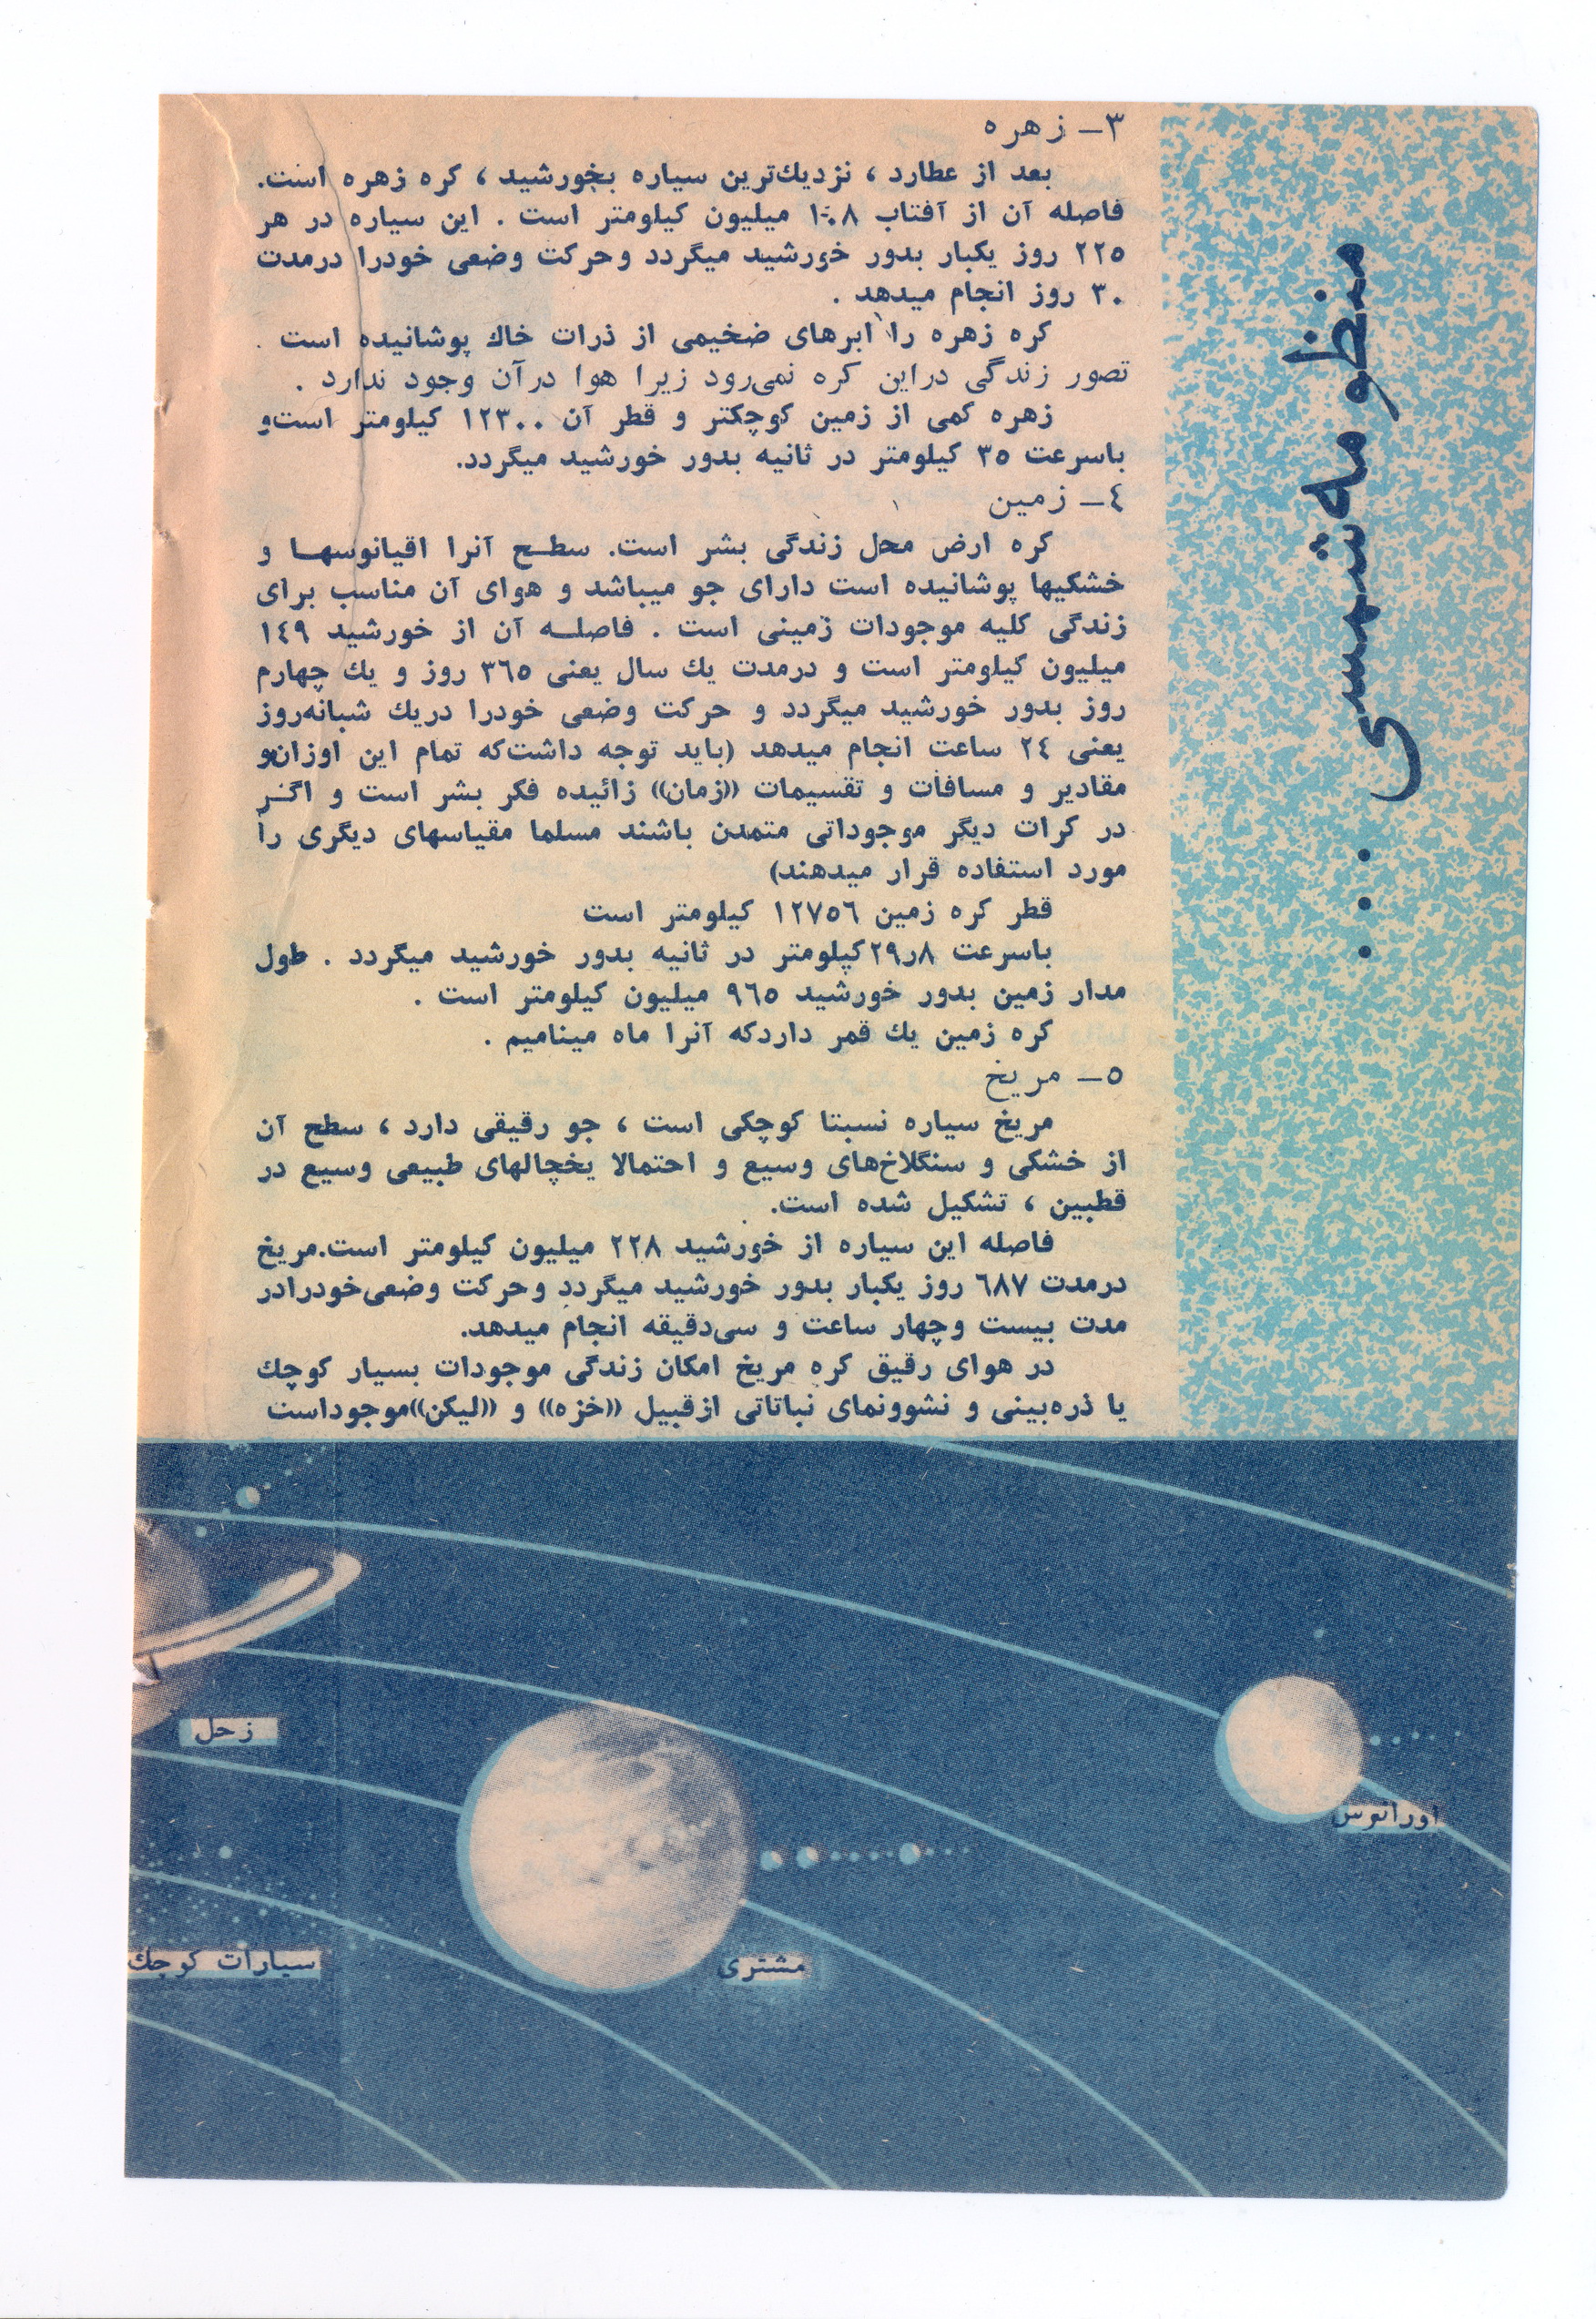 منظومه شمسی ...
۳- زهره
بعد از عطارد ، نزدیك‌ترین سیاره بخورشید ، کره زهره است.
فاصله آن از آفتاب ۱۰۸ میلیون کیلومتر است . این سیاره در هر
۲۲۵ روز یکبار بدور خورشید میگردد وحرکت وضعی خودرا درمدت
۳۰ روز انجام میدهد .
کره زهره را ابرهای ضخیمی از ذرات خاك پوشانیده است .
تصور زندگی دراین کره نمی‌رود زیرا هوا درآن وجود ندارد .
زهره کمی از زمین کوچکتر و قطر آن ۱۲۳۰۰ کیلومتر است‌و
باسرعت ۳۵ کیلومتر در ثانیه بدور خورشید میگردد.
٤- زمین
کره ارض محل زندگی بشر است. سطح آنرا اقیانوسها و
خشکیها پوشانیده است دارای جو میباشد و هوای آن مناسب برای
زندگی کلیه موجودات زمینی است . فاصله آن از خورشید ۱٤۹
میلیون کیلومتر است و درمدت یك سال یعنی ۳٦۵ روز و یك چهارم
روز بدور خورشید میگردد و حرکت وضعی خودرا دریك شبانه‌روز
یعنی ۲٤ ساعت انجام میدهد (باید توجه داشت‌که تمام این اوزان‌و
مقادیر و مسافات و تقسیمات ((زمان)) زائیده فکر بشر است و اگر
در کرات دیگر موجوداتی متمدن باشند مسلما مقیاسهای دیگری را
مورد استفاده قرار میدهند)
قطر کره زمین ۱۲۷۵٦ کیلومتر است
باسرعت ۲۹ر۸ کیلومتر در ثانیه بدور خورشید میگردد . طول
مدار زمین بدور خورشید ۹٦۵ میلیون کیلومتر است .
کره زمین یك قمر داردکه آنرا ماه مینامیم .
۵- مریخ
مریخ سیاره نسبتا کوچکی است ، جو رقیقی دارد ، سطح آن
از خشکی و سنگلاخ‌های وسیع و احتمالا یخچالهای طبیعی وسیع در
قطبین ، تشکیل شده است.
فاصله این سیاره از خورشید ۲۲۸ میلیون کیلومتر است.مریخ
درمدت ٦۸۷ روز یکبار بدور خورشید میگردد وحرکت وضعی‌خودرادر
مدت بیست وچهار ساعت و سی‌دقیقه انجام میدهد.
در هوای رقیق کره مریخ امکان زندگی موجودات بسیار کوچك
یا ذره‌بینی و نشوونمای نباتاتی ازقبیل ((خزه)) و ((لیکن))موجوداست
زحل
اورانوس
مشتری
سیارات کوچك